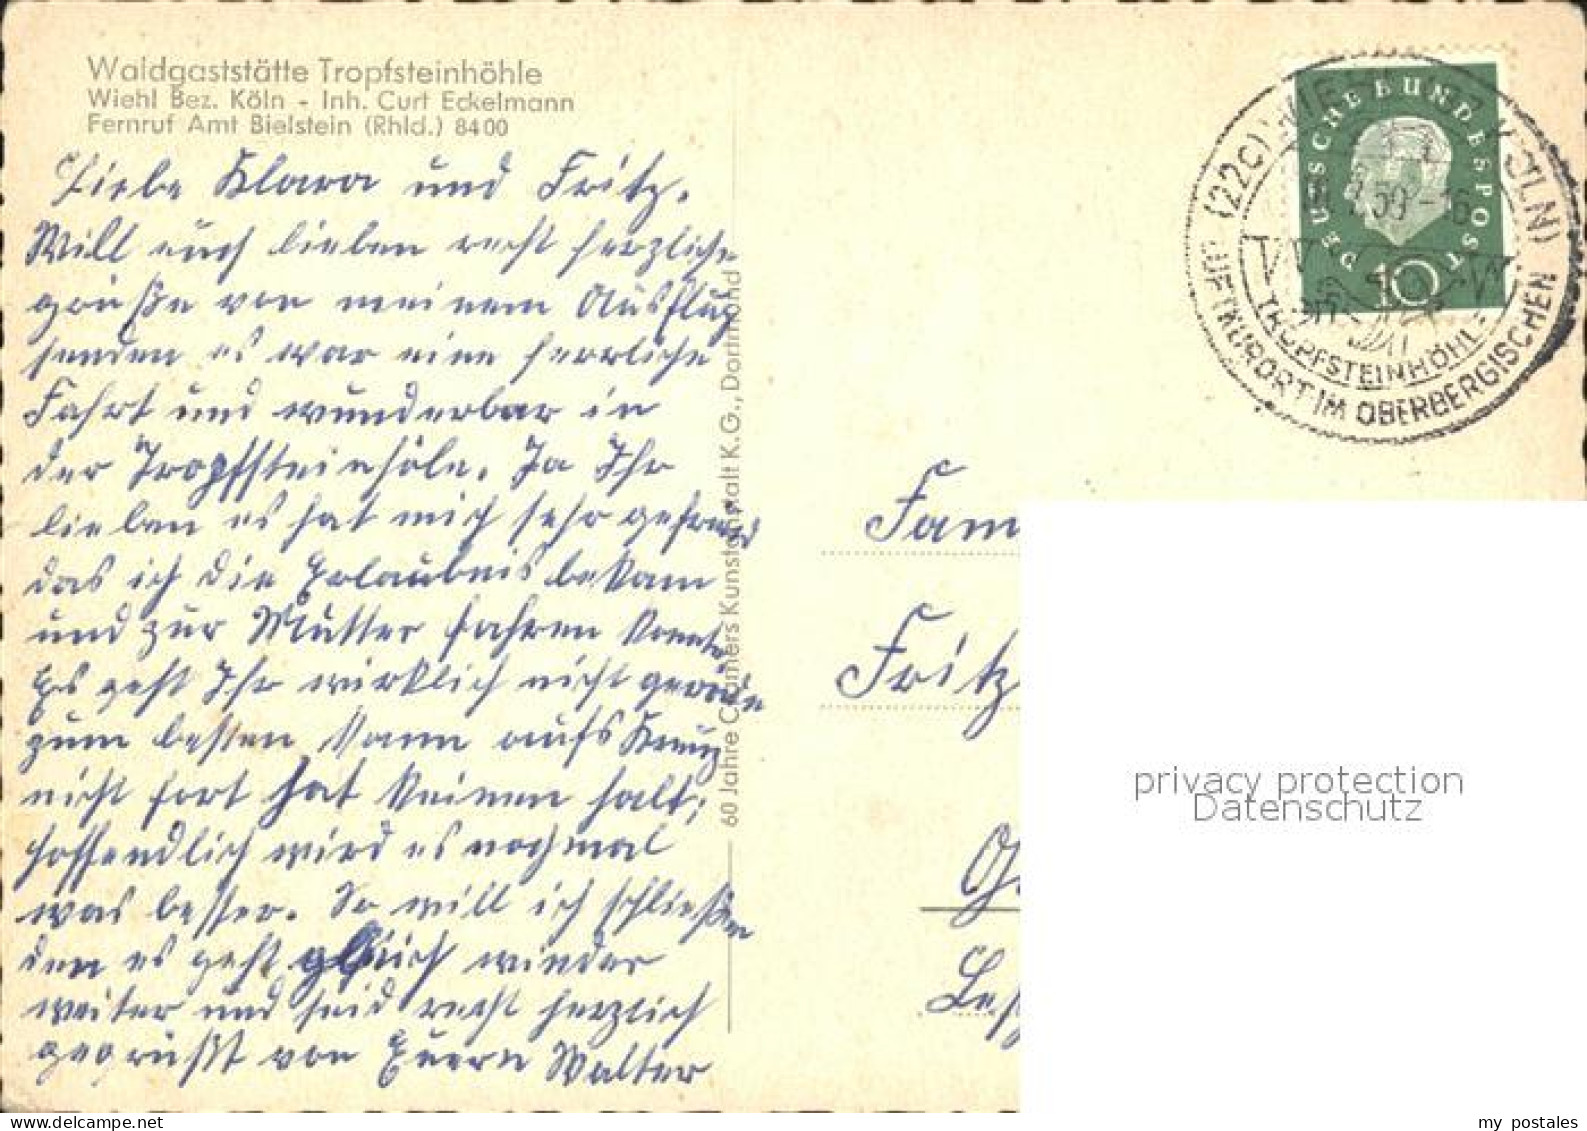 Waldgaststätte Tropfsteinhöhle
Wiehl Bez. Köln - Inh. Curt Eckelmann
Fernruf Amt Bielstein (Rhld.) 8400
Liebe Klara und Fritz.
Will euch lieben recht herzliche
grüße von meinem Ausflug
senden es war eine herrliche
Fahrt und wunderbar in
der Tropfsteinhöle. Ja Ihr
lieben es hat mich sehr gefreud
das ich die Erlaubnis bekam
und zur Mutter fahren konnte
Es geht Ihr wirklich nicht gerade
zum besten kann aufs Kreuz
nicht fort hat keinen halt;
hoffendlich wird es nochmal
was besser. So will ich schließen
den es geht gleich wieder
weiter und seid recht herzlich
gegrüßt von Euern Walter
60 Jahre Cramers Kunstanstalt K.G., Dortmund
DEUTSCHE BUNDESPOST
10
(22c) WIEHL (BZ KÖLN)
59-16
TROPFSTEINHÖHLE
LUFTKURORT IM OBERBERGISCHEN
Fam
Fritz
privacy protection
Datenschutz
my postales